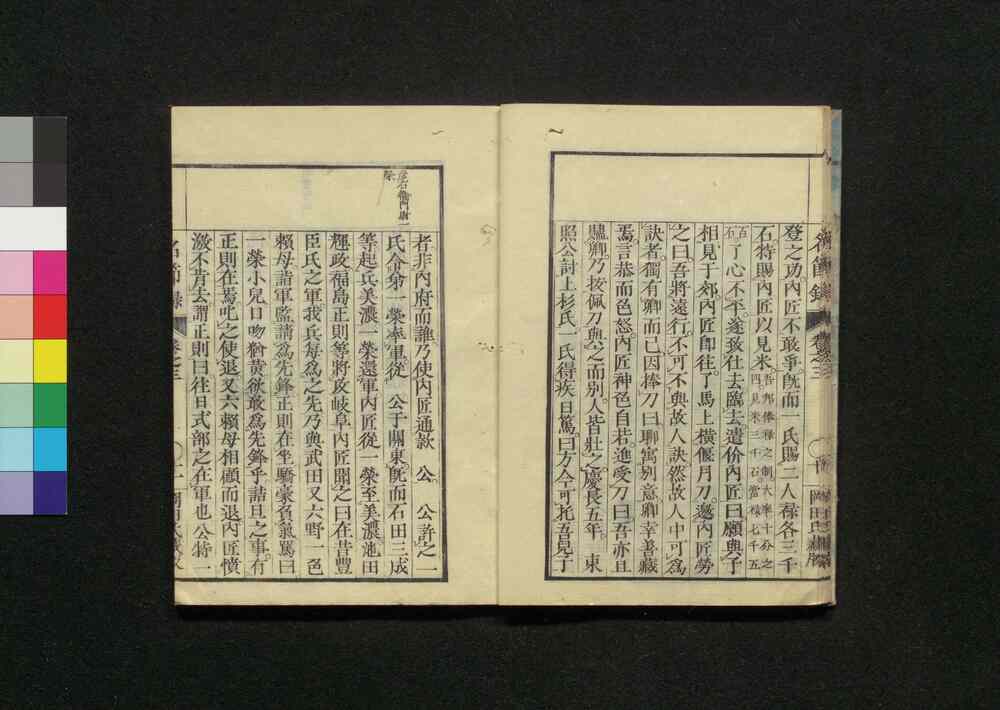 登之功內匠不敢爭旣而一氏賜二人祿各三千
石特賜內匠以見米吾邦俸祿之制大率十分之四見米三千石當祿七千五
百石了心不平遂致仕去臨去遣价內匠曰願與子
相見于郊內匠卽往了馬上橫偃月刀邀內匠勞
之曰吾將遠行不可不與故人訣然故人中可爲
訣者獨有卿而已因捧刀曰聊寓別意卿幸善藏
焉言恭而色怒內匠神色自若進受刀曰吾亦且
贐卿乃拔佩刀與之而別人皆壯之慶長五年 東
照公討上杉氏一氏得疾日篤曰方今可托吾兒于
名節錄 卷之三 十 岡田氏藏版
者非內府而誰乃使內匠通款 公 公許之一
氏令弟一榮率軍從 公于關東旣而石田三成
等起兵美濃一榮還軍內匠從一榮至美濃池田
輝政福島正則等將攻岐阜內匠聞之曰在昔豐
臣氏之軍我兵每爲之先乃與武田又六野一色
賴母詣軍監請爲先鋒正則在坐驕豪負氣罵曰
一榮小兒口吻猶黃欲敢爲先鋒乎詰旦之事有
正則在焉叱之使退又六賴母相顧而退內匠憤
激不肯去謂正則曰往日式部之在軍也公特一
名節錄 卷之三